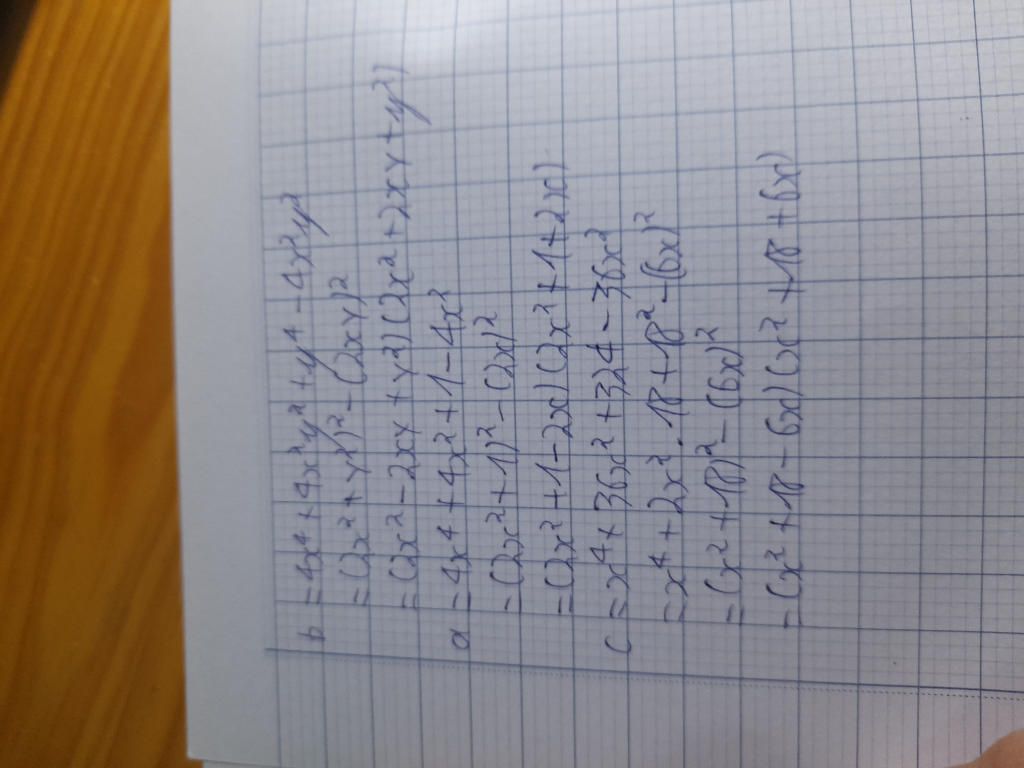 b = 4x⁴ + 4x²y² + y⁴ - 4x²y²
= (2x² + y²)² - (2xy)²
= (2x² - 2xy + y²)(2x² + 2xy + y²)
a = 4x⁴ + 4x² + 1 - 4x²
= (2x² + 1)² - (2x)²
= (2x² + 1 - 2x)(2x² + 1 + 2x)
c = x⁴ + 36x² + 324 - 36x²
= x⁴ + 2x² . 18 + 18² - (6x)²
= (x² + 18)² - (6x)²
= (x² + 18 - 6x)(x² + 18 + 6x)